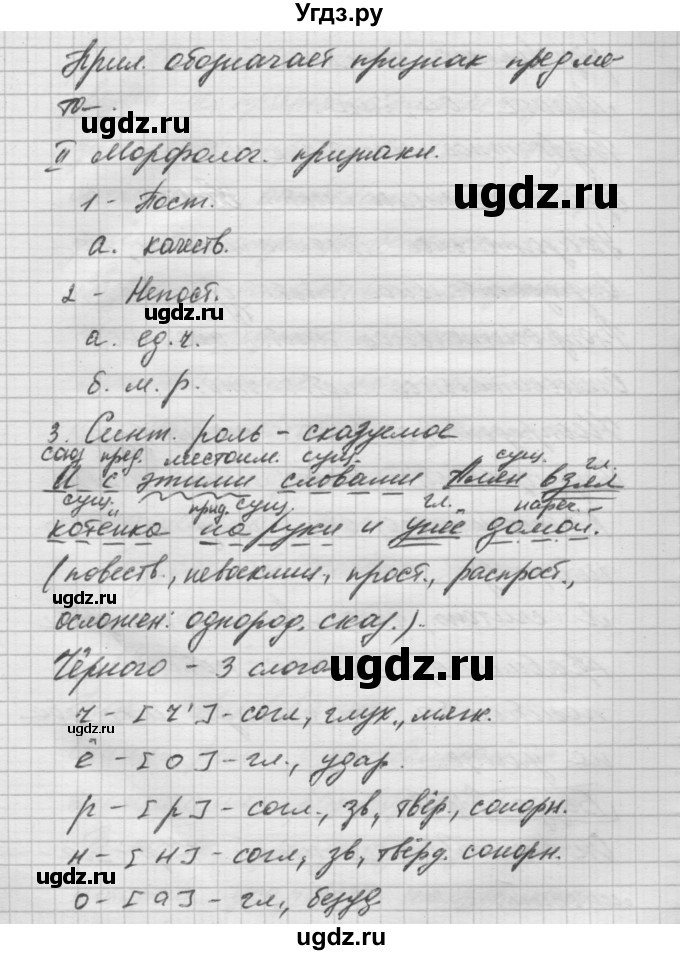 Угдз.ру
Прил. обозначает признак предме-
та.
II Морфолог. признаки.
1 - Пост.
а. качеств.
2 - Непост.
а. ед. ч.
б. м. р.
3. Синт. роль - сказуемое
союз пред. местоим. сущ. сущ. гл.
И с этими словами Ален взял
сущ. пред. сущ. гл. нареч.
котёнка на руки и унёс домой.
(повеств., невосклиц., прост., распрост.,
осложнен: однород. сказ.).
Чёрного - 3 слога
ч - [ч'] - согл., глух., мягк.
ё - [о] - гл., удар.
р - [р] - согл., зв., твёр., сонорн.
н - [н] - согл., зв., твёрд. сонорн.
о - [а] - гл., безуд.
ugdz.ru
ugdz.ru
ugdz.ru
ugdz.ru
ugdz.ru
ugdz.ru
ugdz.ru
ugdz.ru
ugdz.ru